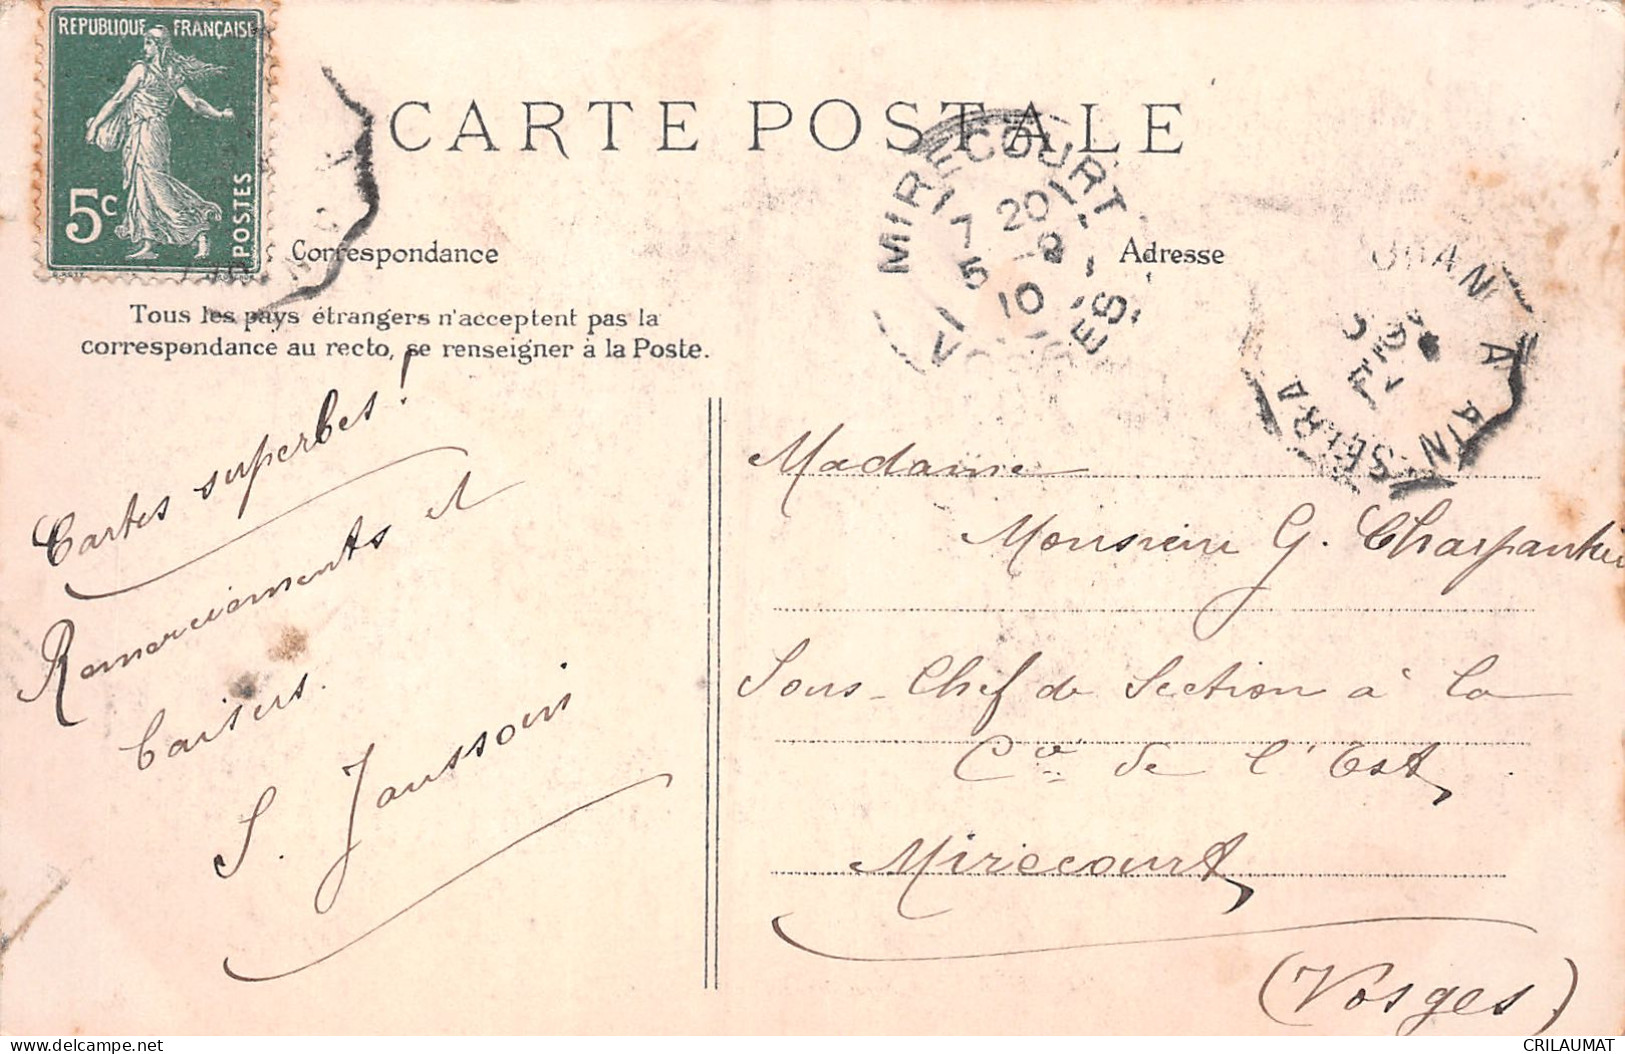 REPUBLIQUE FRANÇAISE
5c
POSTES
CARTE POSTALE
MIRECOURT
20
17 5 10
VOSGES
ORAN A AIN SEFRA
Correspondance
Adresse
Tous les pays étrangers n'acceptent pas la
correspondance au recto, se renseigner à la Poste.
Cartes superbes !
Remerciements et
baisers.
S. Jaussoin
Madame
Monsieur G. Charpentier
Sous-Chef de Section à la
Cie de l'Est
Mirecourt
(Vosges)
delcampe.net
CRILAUMAT